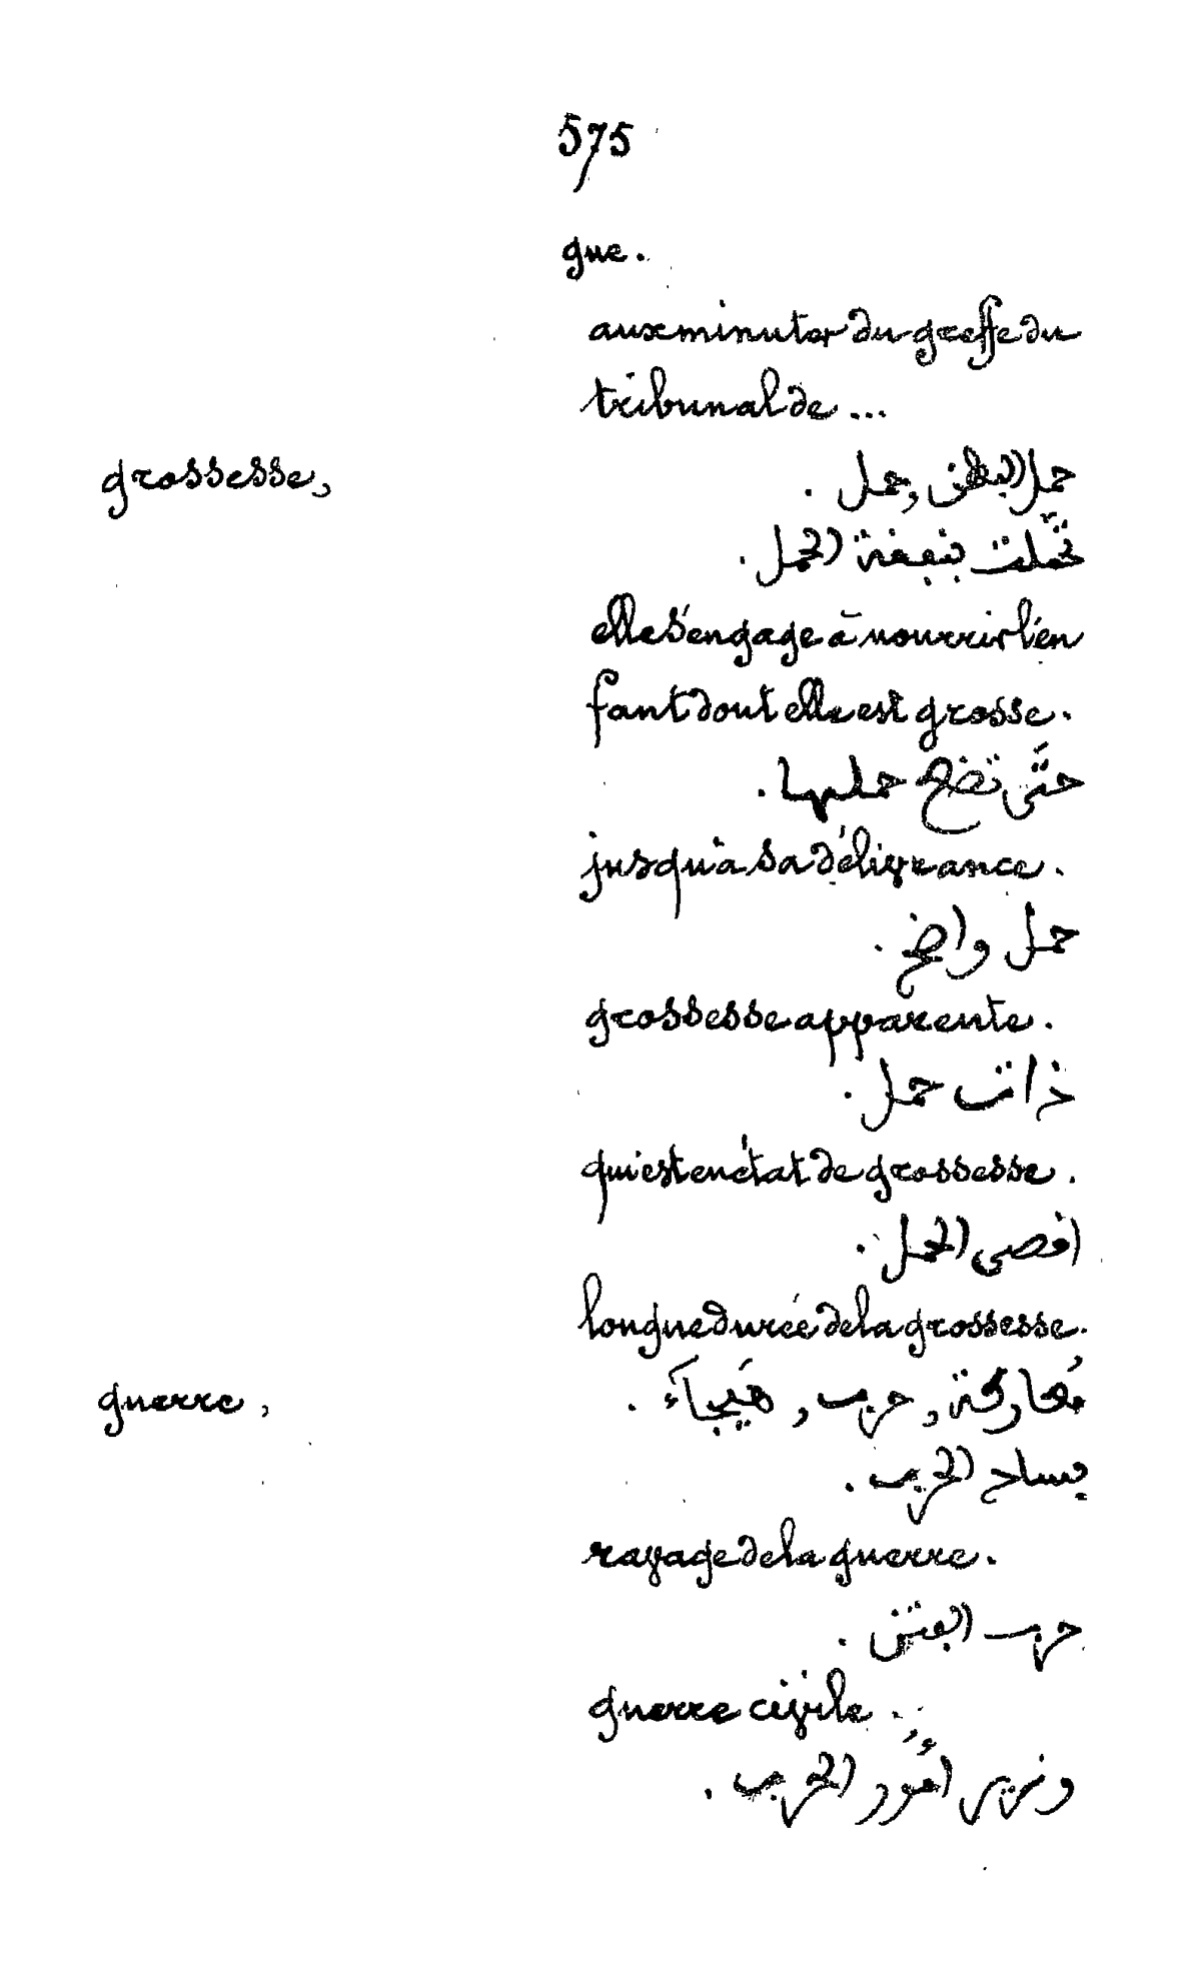 575
gue.
aux minutes du greffe du
tribunal de ...
grossesse, حمل البطن, حمل .
تحمّلت بنفقة الحمل .
elle s'engage à nourrir l'en
fant dont elle est grosse.
حتّى تضع حملها .
jusqu'à sa délivrance.
حمل واضح .
grossesse apparente.
ذات حمل .
qui est en état de grossesse.
اقصى الحمل .
longue durée de la grossesse.
guerre, حرب, هَيجاَء .
الحرب .
ravage de la guerre.
حرب الفتن .
guerre civile.
وزير امُور الحرب .